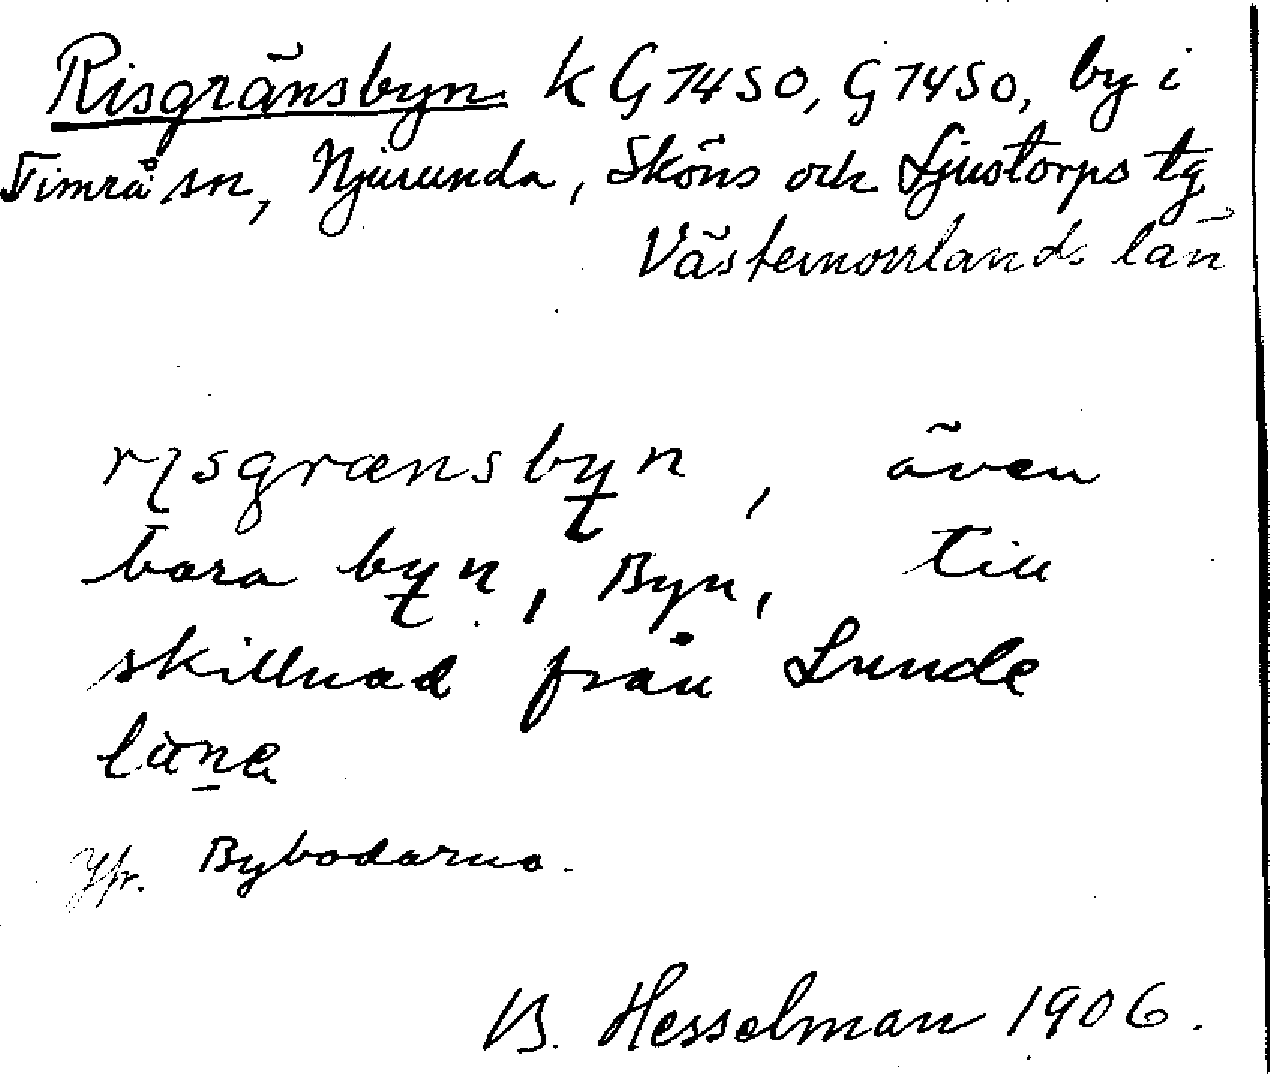 Risgränsbyn k G7450, G7450, by i
Timrå sn, Njurunda, Sköns och Ljustorps tg
Västernorrlands län
risgrænsbyn, även
bara byn, Byn, till
skillnad från Lunde
lùne
Jfr. Bybodarna.
B. Hesselman 1906.